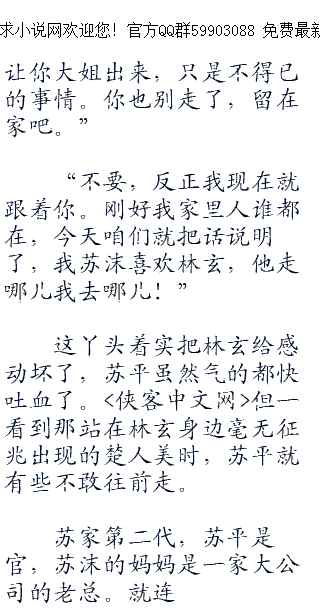 求小说网欢迎您！官方QQ群59903088 免费最新
让你大姐出来，只是不得已
的事情。你也别走了，留在
家吧。”
“不要，反正我现在就
跟着你。刚好我家里人谁都
在，今天咱们就把话说明
了，我苏沫喜欢林玄，他走
哪儿我去哪儿！”
这丫头着实把林玄给感
动坏了，苏平虽然气的都快
吐血了。<侠客中文网>但一
看到那站在林玄身边毫无征
兆出现的楚人美时，苏平就
有些不敢往前走。
苏家第二代，苏平是
官，苏沫的妈妈是一家大公
司的老总。就连